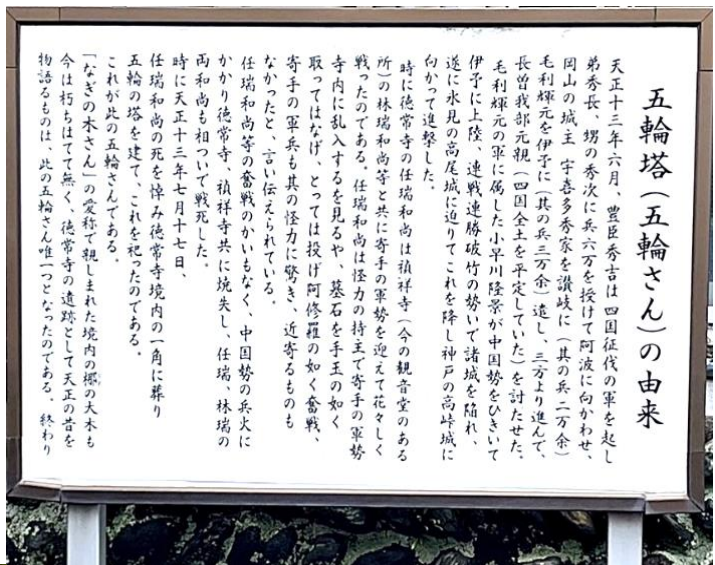 五輪塔(五輪さん)の由来
天正十三年六月、豊臣秀吉は四国征伐の軍を起し
弟秀長、甥の秀次に兵六万を授けて阿波に向かわせ、
岡山の城主 宇喜多秀家を讃岐に(其の兵二万余)
毛利輝元を伊予に(其の兵三万余)遣し、三方より進んで、
長曽我部元親(四国全土を平定していた)を討たせた。
毛利輝元の軍に属した小早川隆景が中国勢をひきいて
伊予に上陸、連戦連勝破竹の勢いで諸城を陥れ、
遂に氷見の高尾城に迫りてこれを降し神戸の高峠城に
向かって進撃した。
時に徳常寺の任瑞和尚は禎祥寺(今の観音堂のある
所)の林瑞和尚等と共に寄手の軍勢を迎えて花々しく
戦ったのである。任瑞和尚は怪力の持主で寄手の軍勢
寺内に乱入するを見るや、墓石を手玉の如く
取ってはなげ、とっては投げ阿修羅の如く奮戦、
寄手の軍兵も其の怪力に驚き、近寄るものも
なかったと、言い伝えられている。
任瑞和尚等の奮戦のかいもなく、中国勢の兵火に
かかり徳常寺、禎祥寺共に焼失し、任瑞、林瑞の
両和尚も相ついで戦死した。
時に天正十三年七月十七日、
任瑞和尚の死を悼み徳常寺境内の一角に葬り
五輪の塔を建て、これを祀ったのである。
これが此の五輪さんである。
「なぎの木さん」の愛称で親しまれた境内の梛の大木も
今は朽ちはてて無く、徳常寺の遺跡として天正の昔を
物語るものは、此の五輪さん唯一つとなったのである。 終わり